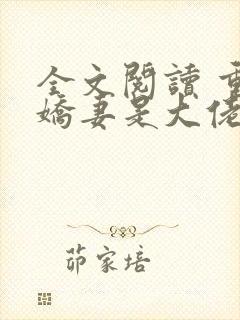 全文閱讀 重
嬌妻是大佬
茆家培